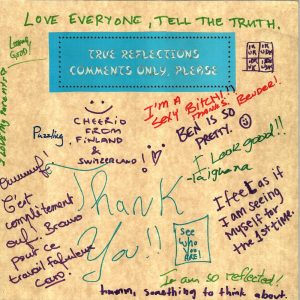 LOVE EVERYONE, TELL THE TRUTH.
TRUE REFLECTIONS
COMMENTS ONLY, PLEASE
I'M A
SEXY BITCH!!!
THANKS, BENDER!
BEN IS SO
PRETTY.
CHEERIO
FROM
FINLAND
&
SWITZERLAND!
Puzzling
I Look good!!
I feel as if
I am seeing
Myself for
the 1st time.
C'est
complètement
ouf. Bravo
pour ce
travail fabuleux
Thank
You!!
See
Who
You
ARE!
I am so reflected!
hmmm, something to think about